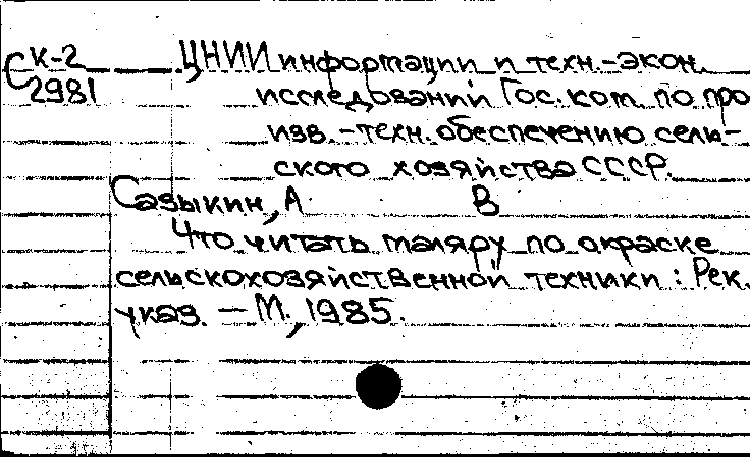 СК-2 ЦНИИ информации и техн.-экон.
2981 исследований Гос. ком. по про
изв.-техн. обеспечению сель-
ского хозяйства СССР.
Сазыкин, А В
Что читать маляру по окраске
сельскохозяйственной техники : Рек.
указ. — М., 1985.